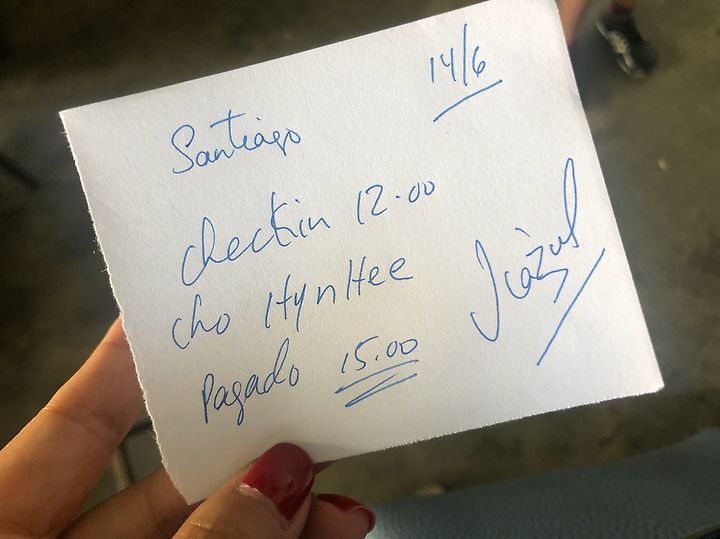 14/6
Santiago
checkin 12.00
cho HynHee
Pagado 15.00